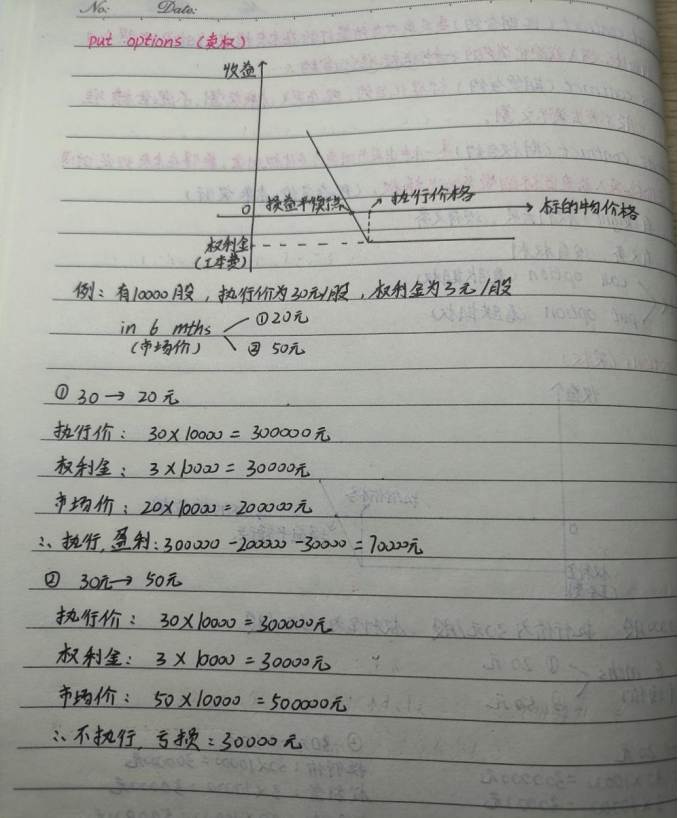 No: Date:
put options (卖权)
收益
0 损益平衡点 执行价格 标的物价格
权利金
(工本费)
例: 有10000股, 执行价为30元/股, 权利金为3元/股
in 6 mths ①20元
(市场价) ② 50元
① 30 → 20元
执行价: 30×10000 = 300000元
权利金: 3×10000 = 30000元
市场价: 20×10000 = 200000元
∴ 执行, 盈利: 300000 - 200000 - 30000 = 70000元
② 30元 → 50元
执行价: 30×10000 = 300000元
权利金: 3×10000 = 30000元
市场价: 50×10000 = 500000元
∴ 不执行, 亏损: 30000元